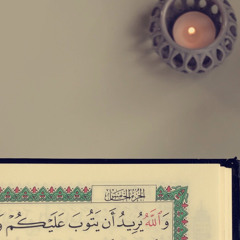 الجزء الخامس
وَٱللَّهُ يُرِيدُ أَن يَتُوبَ عَلَيْكُمْ وَ